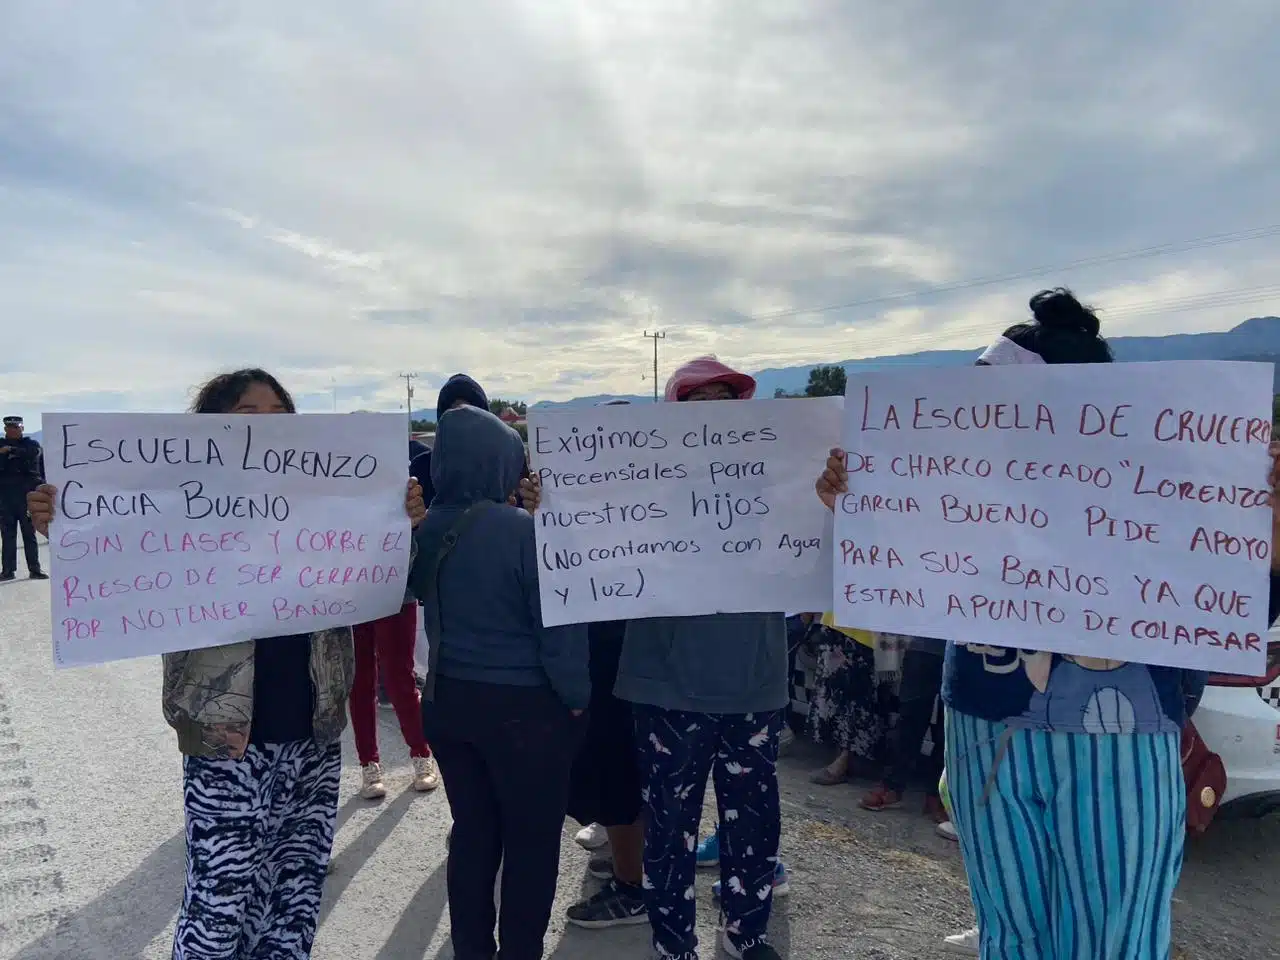 ESCUELA "LORENZO
GACIA BUENO
SIN CLASES Y CORRE EL
RIESGO DE SER CERRADA
POR NO TENER BAÑOS
Exigimos clases
Precensiales para
nuestros hijos
(No contamos con Agua
y luz).
LA ESCUELA DE CRUCERO
DE CHARCO CECADO "LORENZO
GARCIA BUENO PIDE APOYO
PARA SUS BAÑOS YA QUE
ESTAN APUNTO DE COLAPSAR